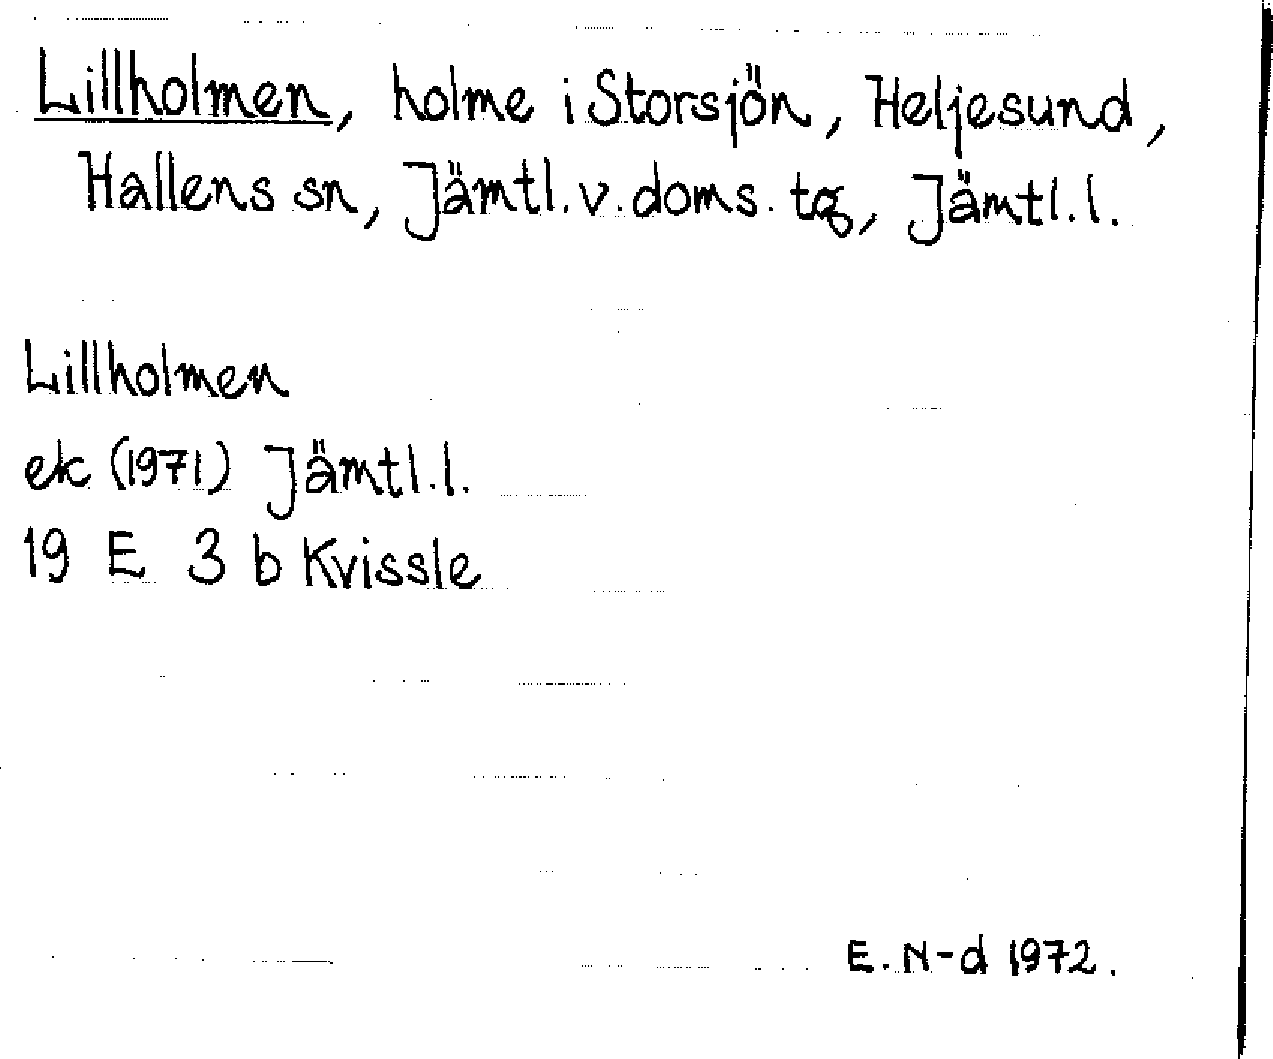 Lillholmen, holme i Storsjön, Heljesund,
Hallens sn, Jämtl. v. doms. tg, Jämtl. l.
Lillholmen
ek (1971) Jämtl. l.
19 E 3 b Kvissle
E. N-d 1972.